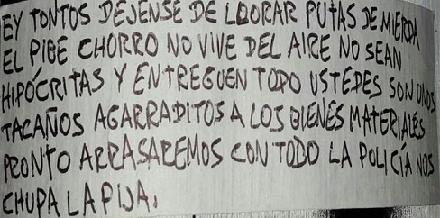 EY TONTOS DEJENSE DE LLORAR PUTAS DE MIERDA
EL PIBE CHORRO NO VIVE DEL AIRE NO SEAN
HIPÓCRITAS Y ENTREGUEN TODO USTEDES SON UNOS
TACAÑOS AGARRADITOS A LOS BIENES MATERIALES
PRONTO ARRASAREMOS CON TODO LA POLICÍA NOS
CHUPA LA PIJA.